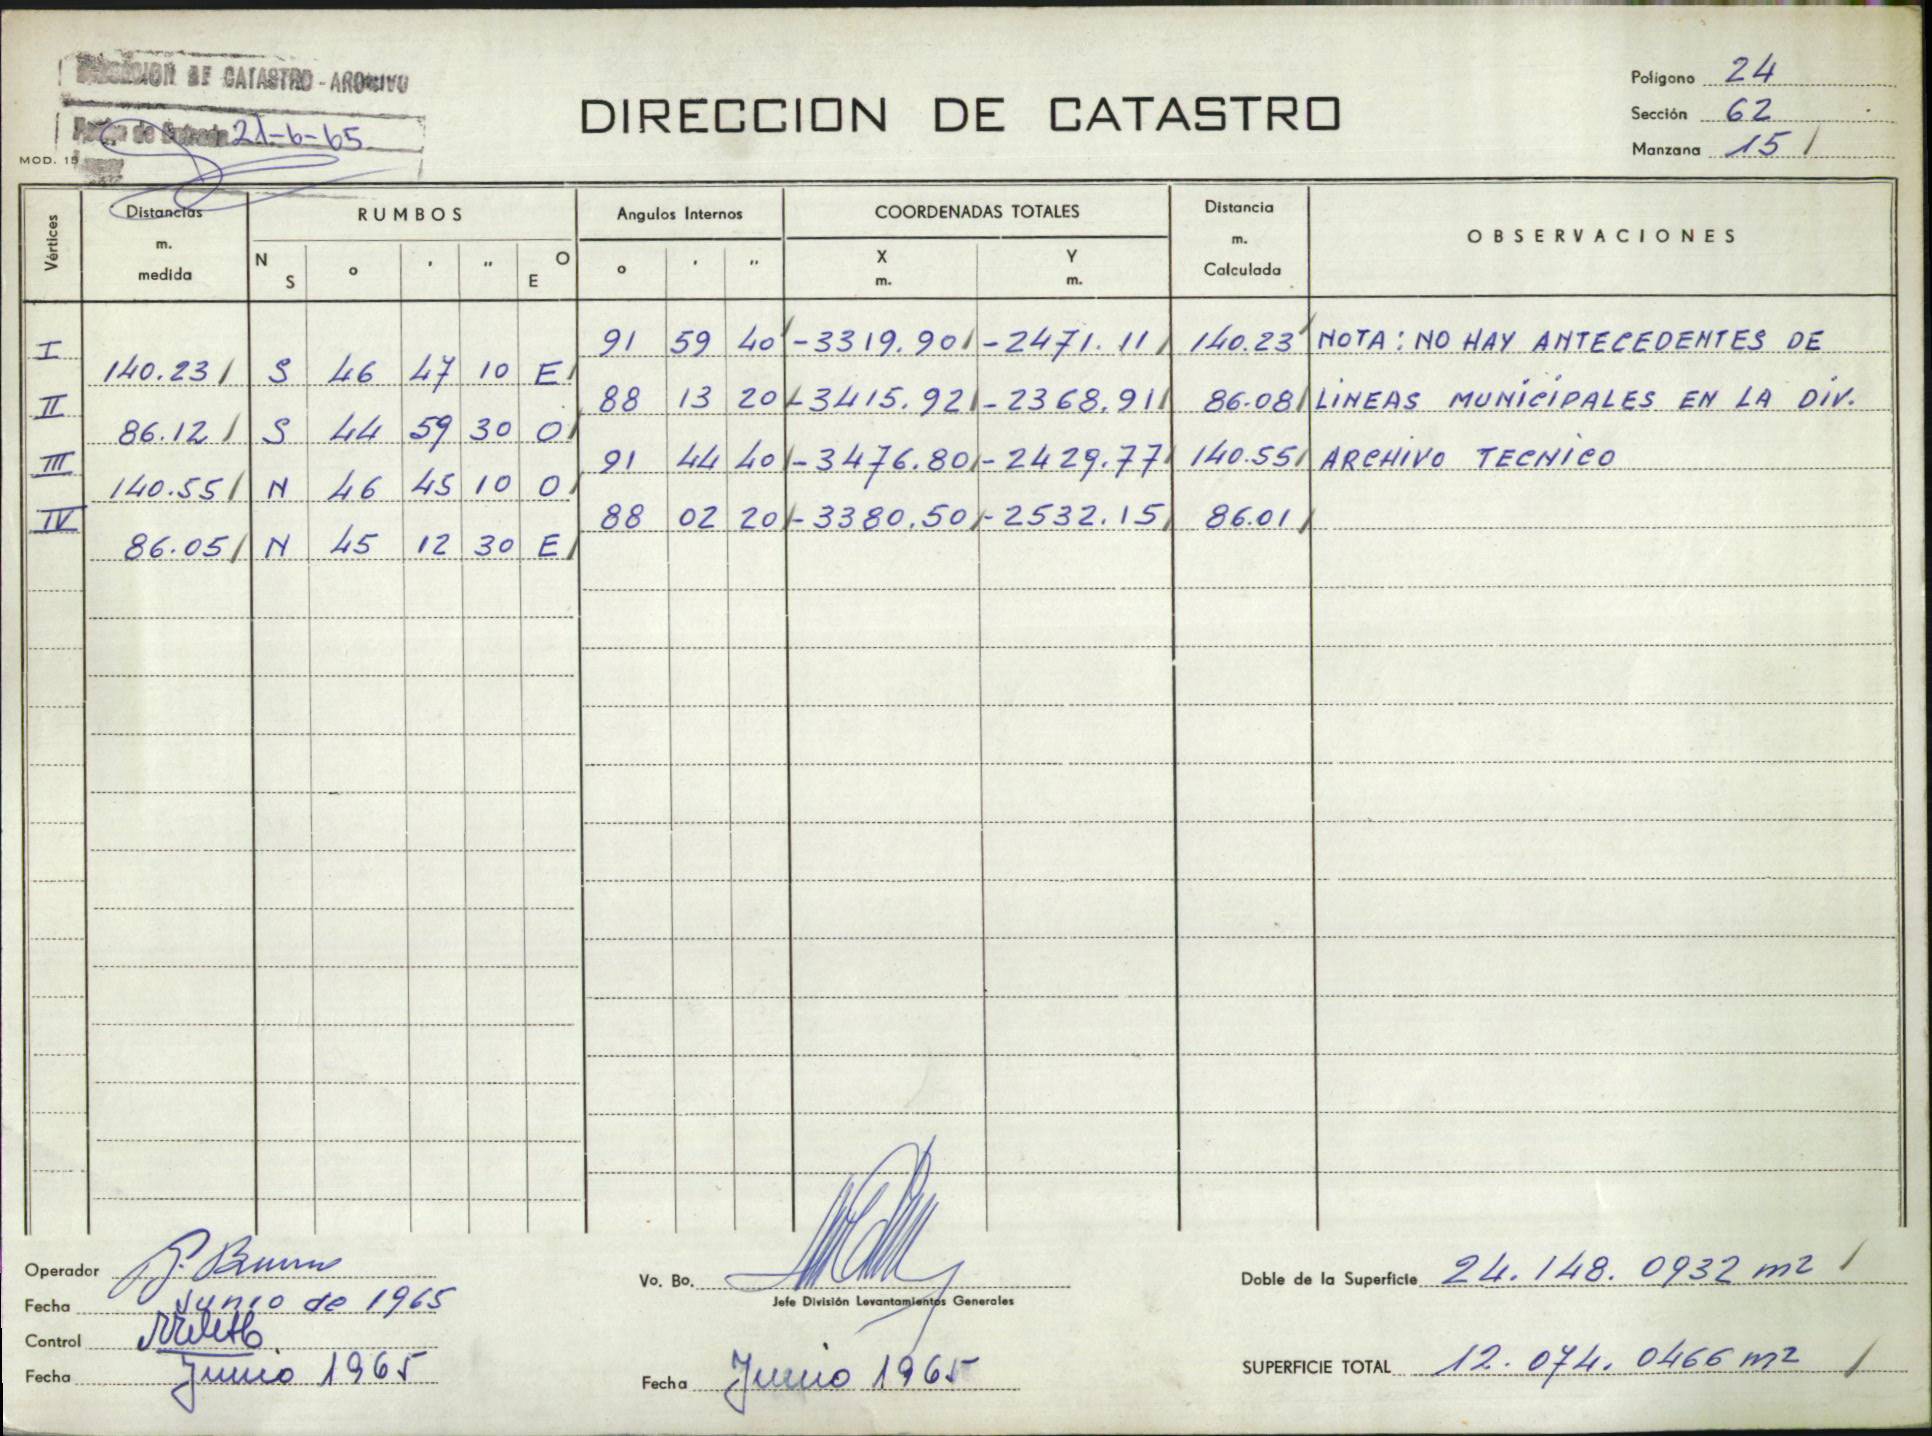 DE CATASTRO - ARCHIVO
de Entrada 21-6-65
MOD. 15
DIRECCION DE CATASTRO
Polígono 24
Sección 62
Manzana 15
Vértices
Distancias m. medida
RUMBOS
N S ° ' " E O
Angulos Internos
° ' "
COORDENADAS TOTALES
X m. Y m.
Distancia m. Calculada
OBSERVACIONES
I 91 59 40 -3319.90 -2471.11 140.23 NOTA: NO HAY ANTECEDENTES DE
140.23 S 46 47 10 E
II 88 13 20 -3415.92 -2368.91 86.08 LINEAS MUNICIPALES EN LA DIV.
86.12 S 44 59 30 O
III 91 44 40 -3476.80 -2429.77 140.55 ARCHIVO TECNICO
140.55 N 46 45 10 O
IV 88 02 20 -3380.50 -2532.15 86.01
86.05 N 45 12 30 E
Operador
Fecha Junio de 1965
Control
Fecha Junio 1965
Vo. Bo.
Jefe División Levantamientos Generales
Fecha Junio 1965
Doble de la Superficie 24.148.0932 m2
SUPERFICIE TOTAL 12.074.0466 m2